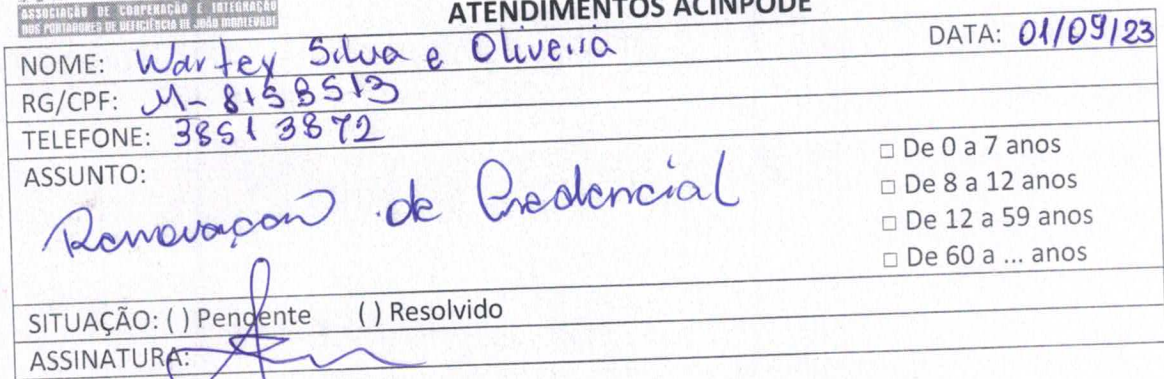 ASSOCIAÇÃO DE COOPERAÇÃO E INTEGRAÇÃO
DOS PORTADORES DE DEFICIÊNCIA DE JOÃO MONLEVADE
ATENDIMENTOS ACINPODE
NOME: Warley Silva e Oliveira DATA: 01/09/23
RG/CPF: M-8158513
TELEFONE: 38513872
ASSUNTO:
Renovaçaõ de Credencial
□ De 0 a 7 anos
□ De 8 a 12 anos
□ De 12 a 59 anos
□ De 60 a ... anos
SITUAÇÃO: ( ) Pendente ( ) Resolvido
ASSINATURA: